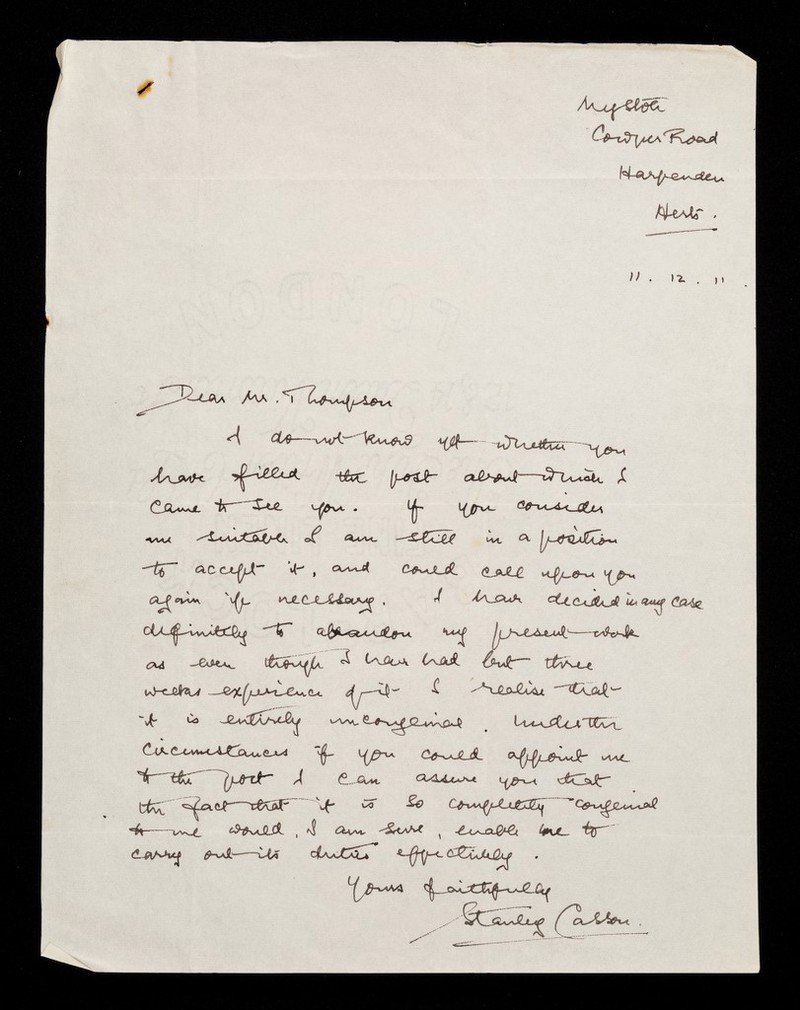 Cowper Road
Harpenden
Herts.
11. 12. 11.
Dear Mr. Thompson
I do not know yet whether you
have filled the post about which I
came to see you. If you consider
me suitable I am still in a position
to accept it, and could call upon you
again if necessary. I have decided in any case
definitely to abandon my present work
as even though I have had but three
weeks experience of it I realise that
it is entirely uncongenial. Under the
circumstances if you could appoint me
to the post I can assure you that
the fact that it is so completely congenial
to me would, I am sure, enable me to
carry out its duties effectively.
Yours faithfully
Stanley Casson.
LONDON